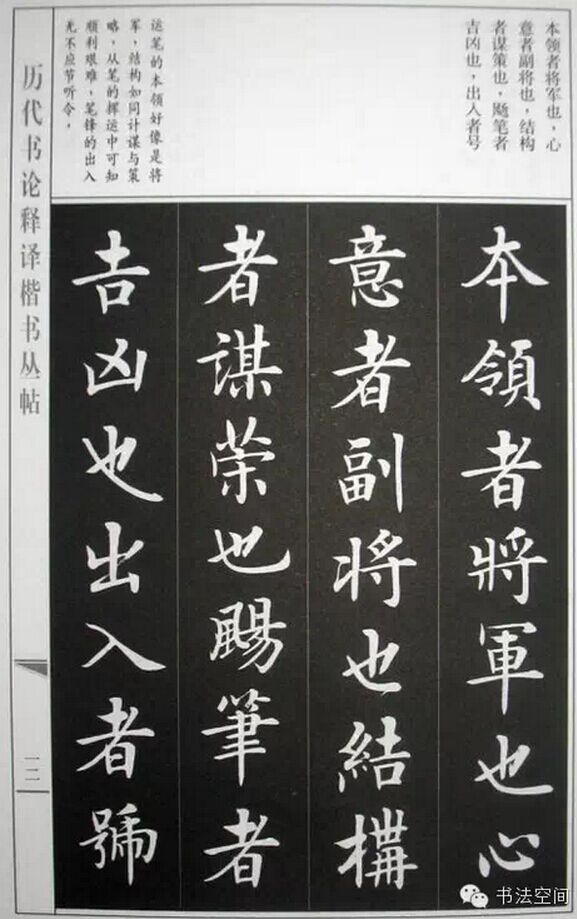 本领者将军也，心
意者副将也，结构
者谋策也，飏笔者
吉凶也，出入者号
运笔的本领好像是将
军，结构如同计谋与策
略，从笔的挥运中可知
顺利艰难，笔锋的出入
无不应节听令。
本領者將軍也心
意者副将也結構
者謀策也颺筆者
吉凶也出入者號
历代书论释译楷书丛帖
三
书法空间